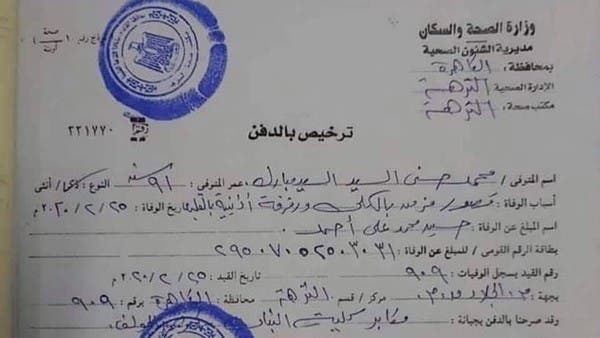 وزارة الصحة والسكان
مديرية الشئون الصحية
بمحافظة: القاهرة
الإدارة الصحية النزهة
مكتب صحة: النزهة
صحة
٢٢١٧٧٠
ترخيص بالدفن
اسم المتوفى / محمد حسنى السيد السيد مبارك عمر المتوفى: ٩١ سنة النوع: ذكر / أنثى
أسباب الوفاة: قصور مزمن بالكلى ورفرفة أذنية بالقلب تاريخ الوفاة: ٢٥ / ٢ / ٢٠٢٠ م
اسم المبلغ عن الوفاة: حسيد محمد على أحمد
بطاقة الرقم القومى / للمبلغ عن الوفاة: ٢٩٥٠٧٠٥٢٥٠٣٠٣١
رقم القيد بسجل الوفيات: ٩٠٩ تاريخ القيد: ٢٥ / ٢ / ٢٠٢٠ م
بجهة: مركز / قسم النزهة محافظة: القاهرة برقم: ٩٠٩
وقد صرحنا بالدفن بجبانة: مقابر كلية البنات